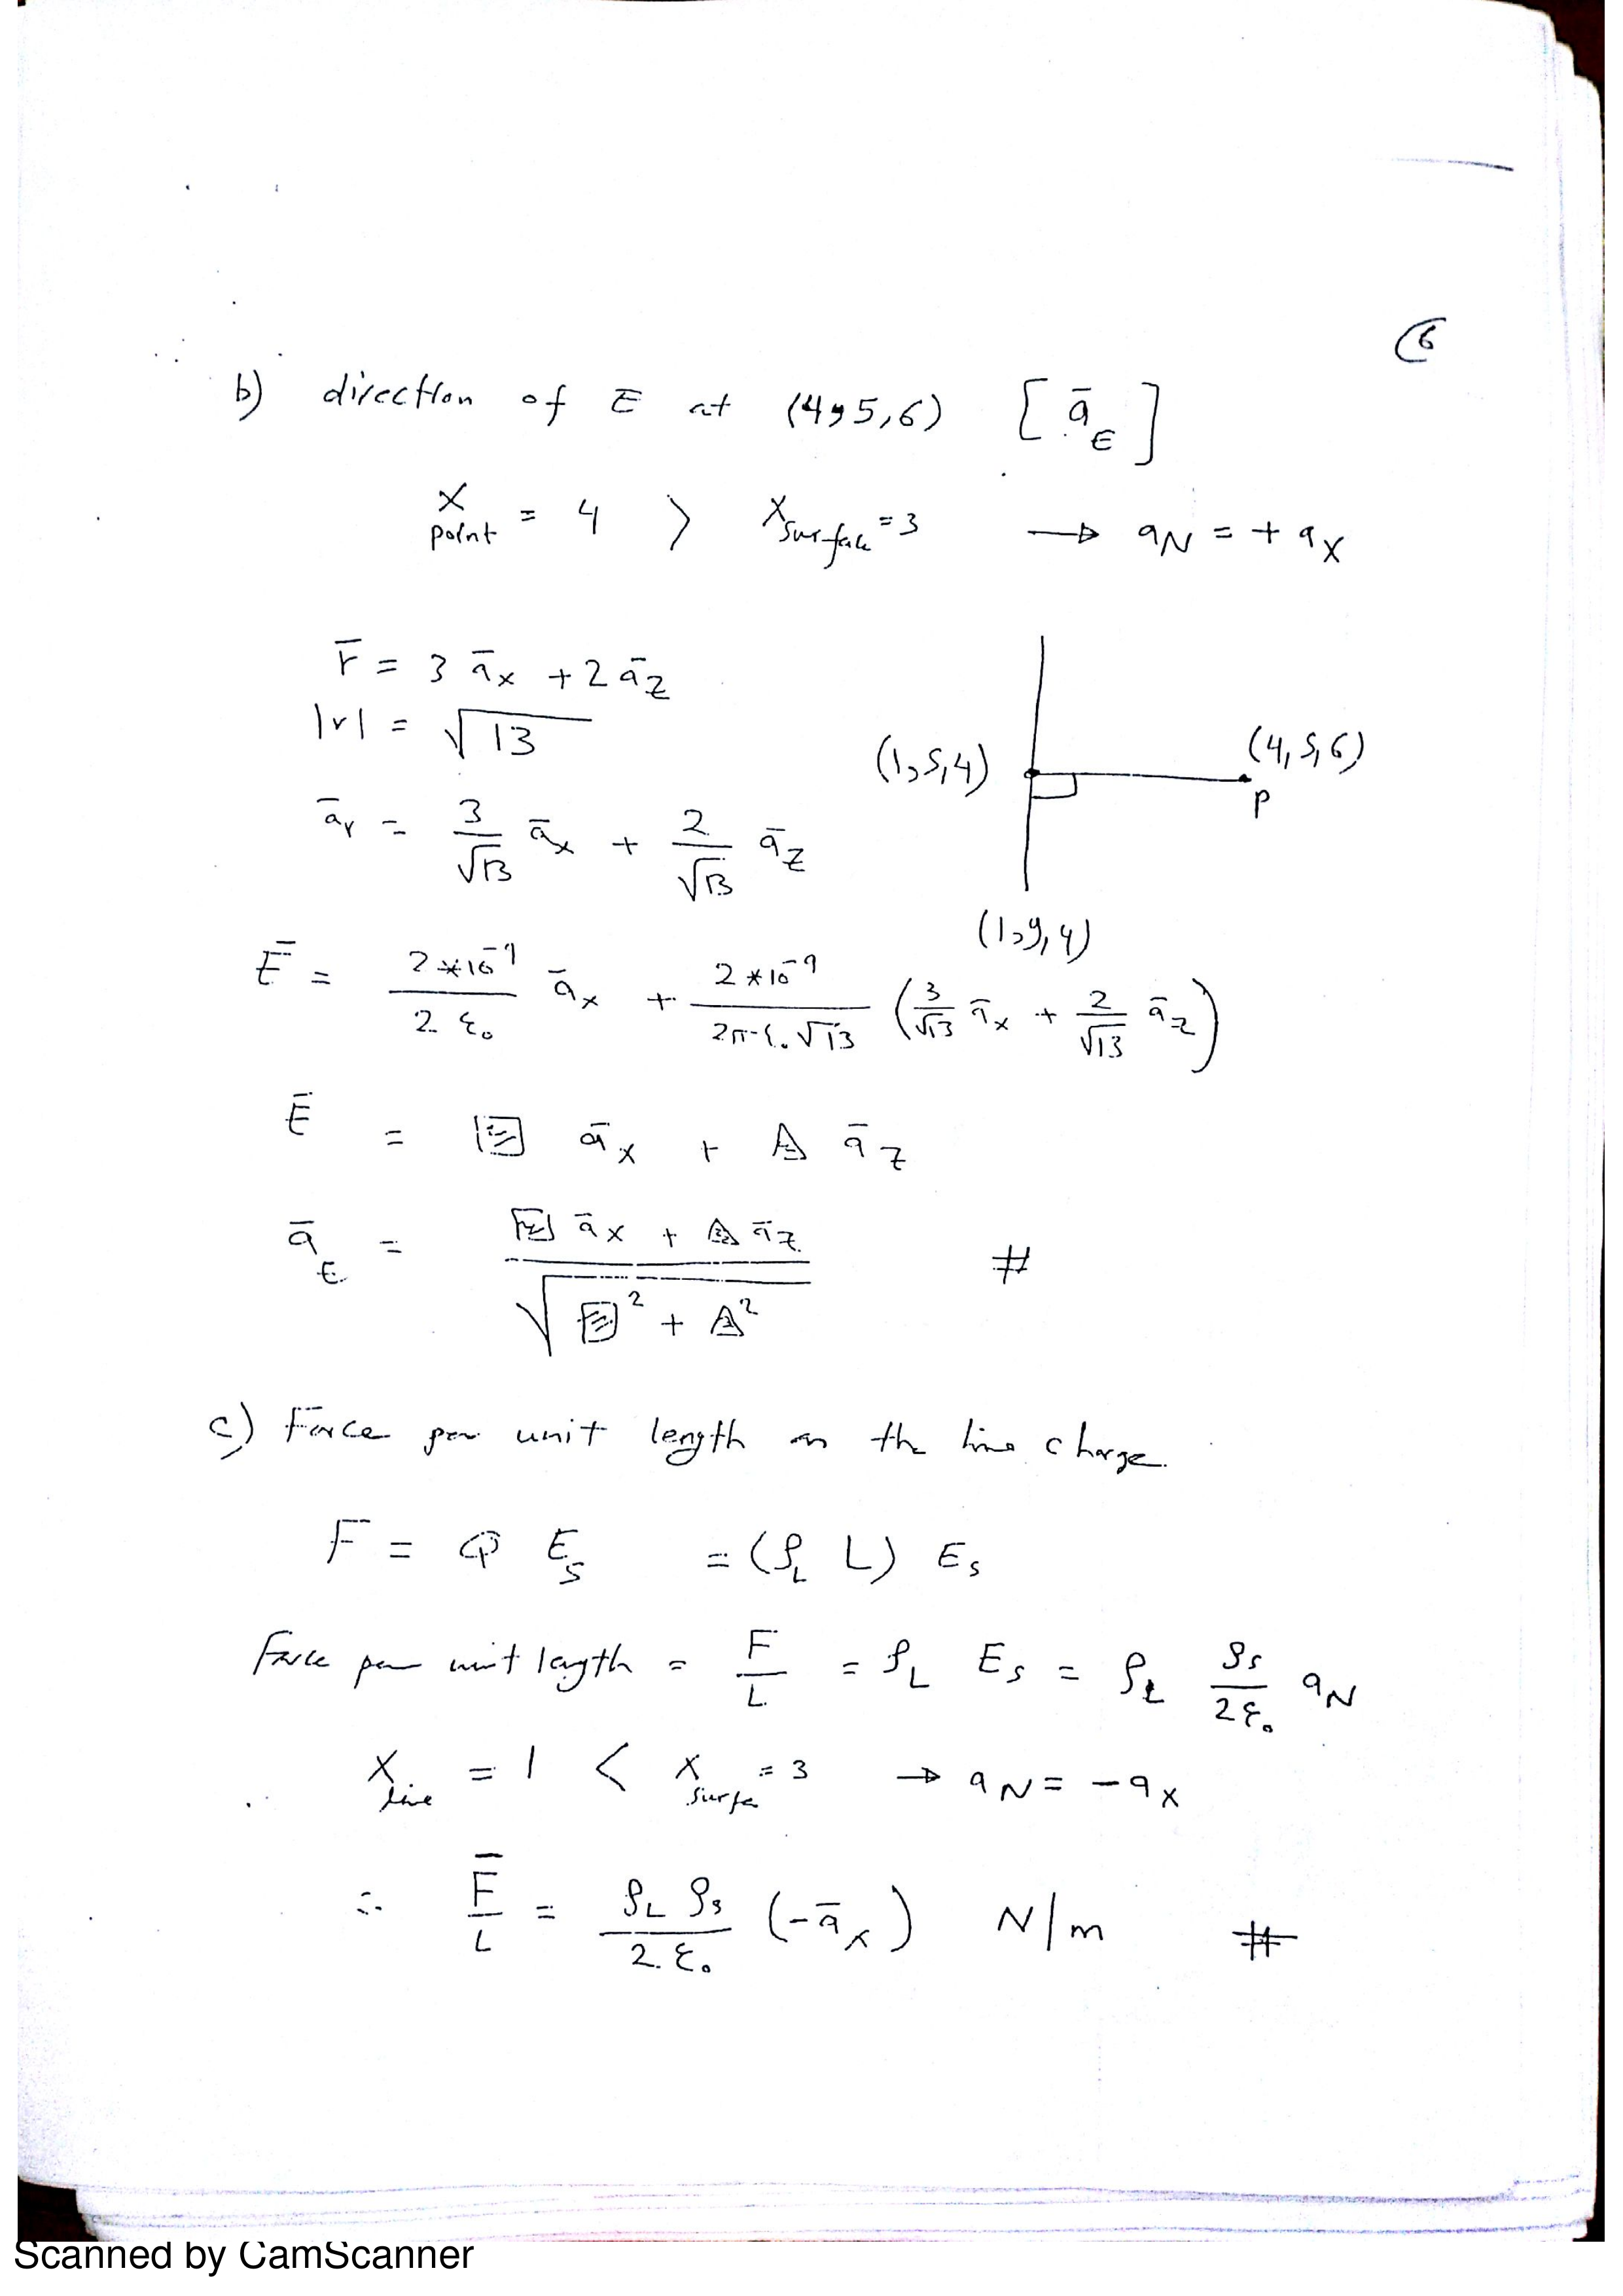 6
b) direction of E at (4,5,6) [ā_E]
x_point = 4 > x_surface = 3 → a_N = + a_x
r̄ = 3 ā_x + 2 ā_z
|r| = √13
(1,5,4) (4,5,6)
P
ā_r = 3/√13 ā_x + 2/√13 ā_z
(1,y,4)
Ē = 2*10^-9 / 2 ε₀ ā_x + 2*10^-9 / 2π ε₀ √13 (3/√13 ā_x + 2/√13 ā_z)
Ē = □ ā_x + △ ā_z
ā_E = □ ā_x + △ ā_z / √(□² + △²) #
c) Force per unit length on the line charge.
F = Q E_s = (ρ_L L) E_s
Force per unit length = F/L = ρ_L E_s = ρ_L ρ_s/2ε₀ a_N
x_line = 1 < x_surfa = 3 → a_N = -a_x
∴ F̄/L = ρ_L ρ_s / 2 ε₀ (-ā_x) N/m #
Scanned by CamScanner